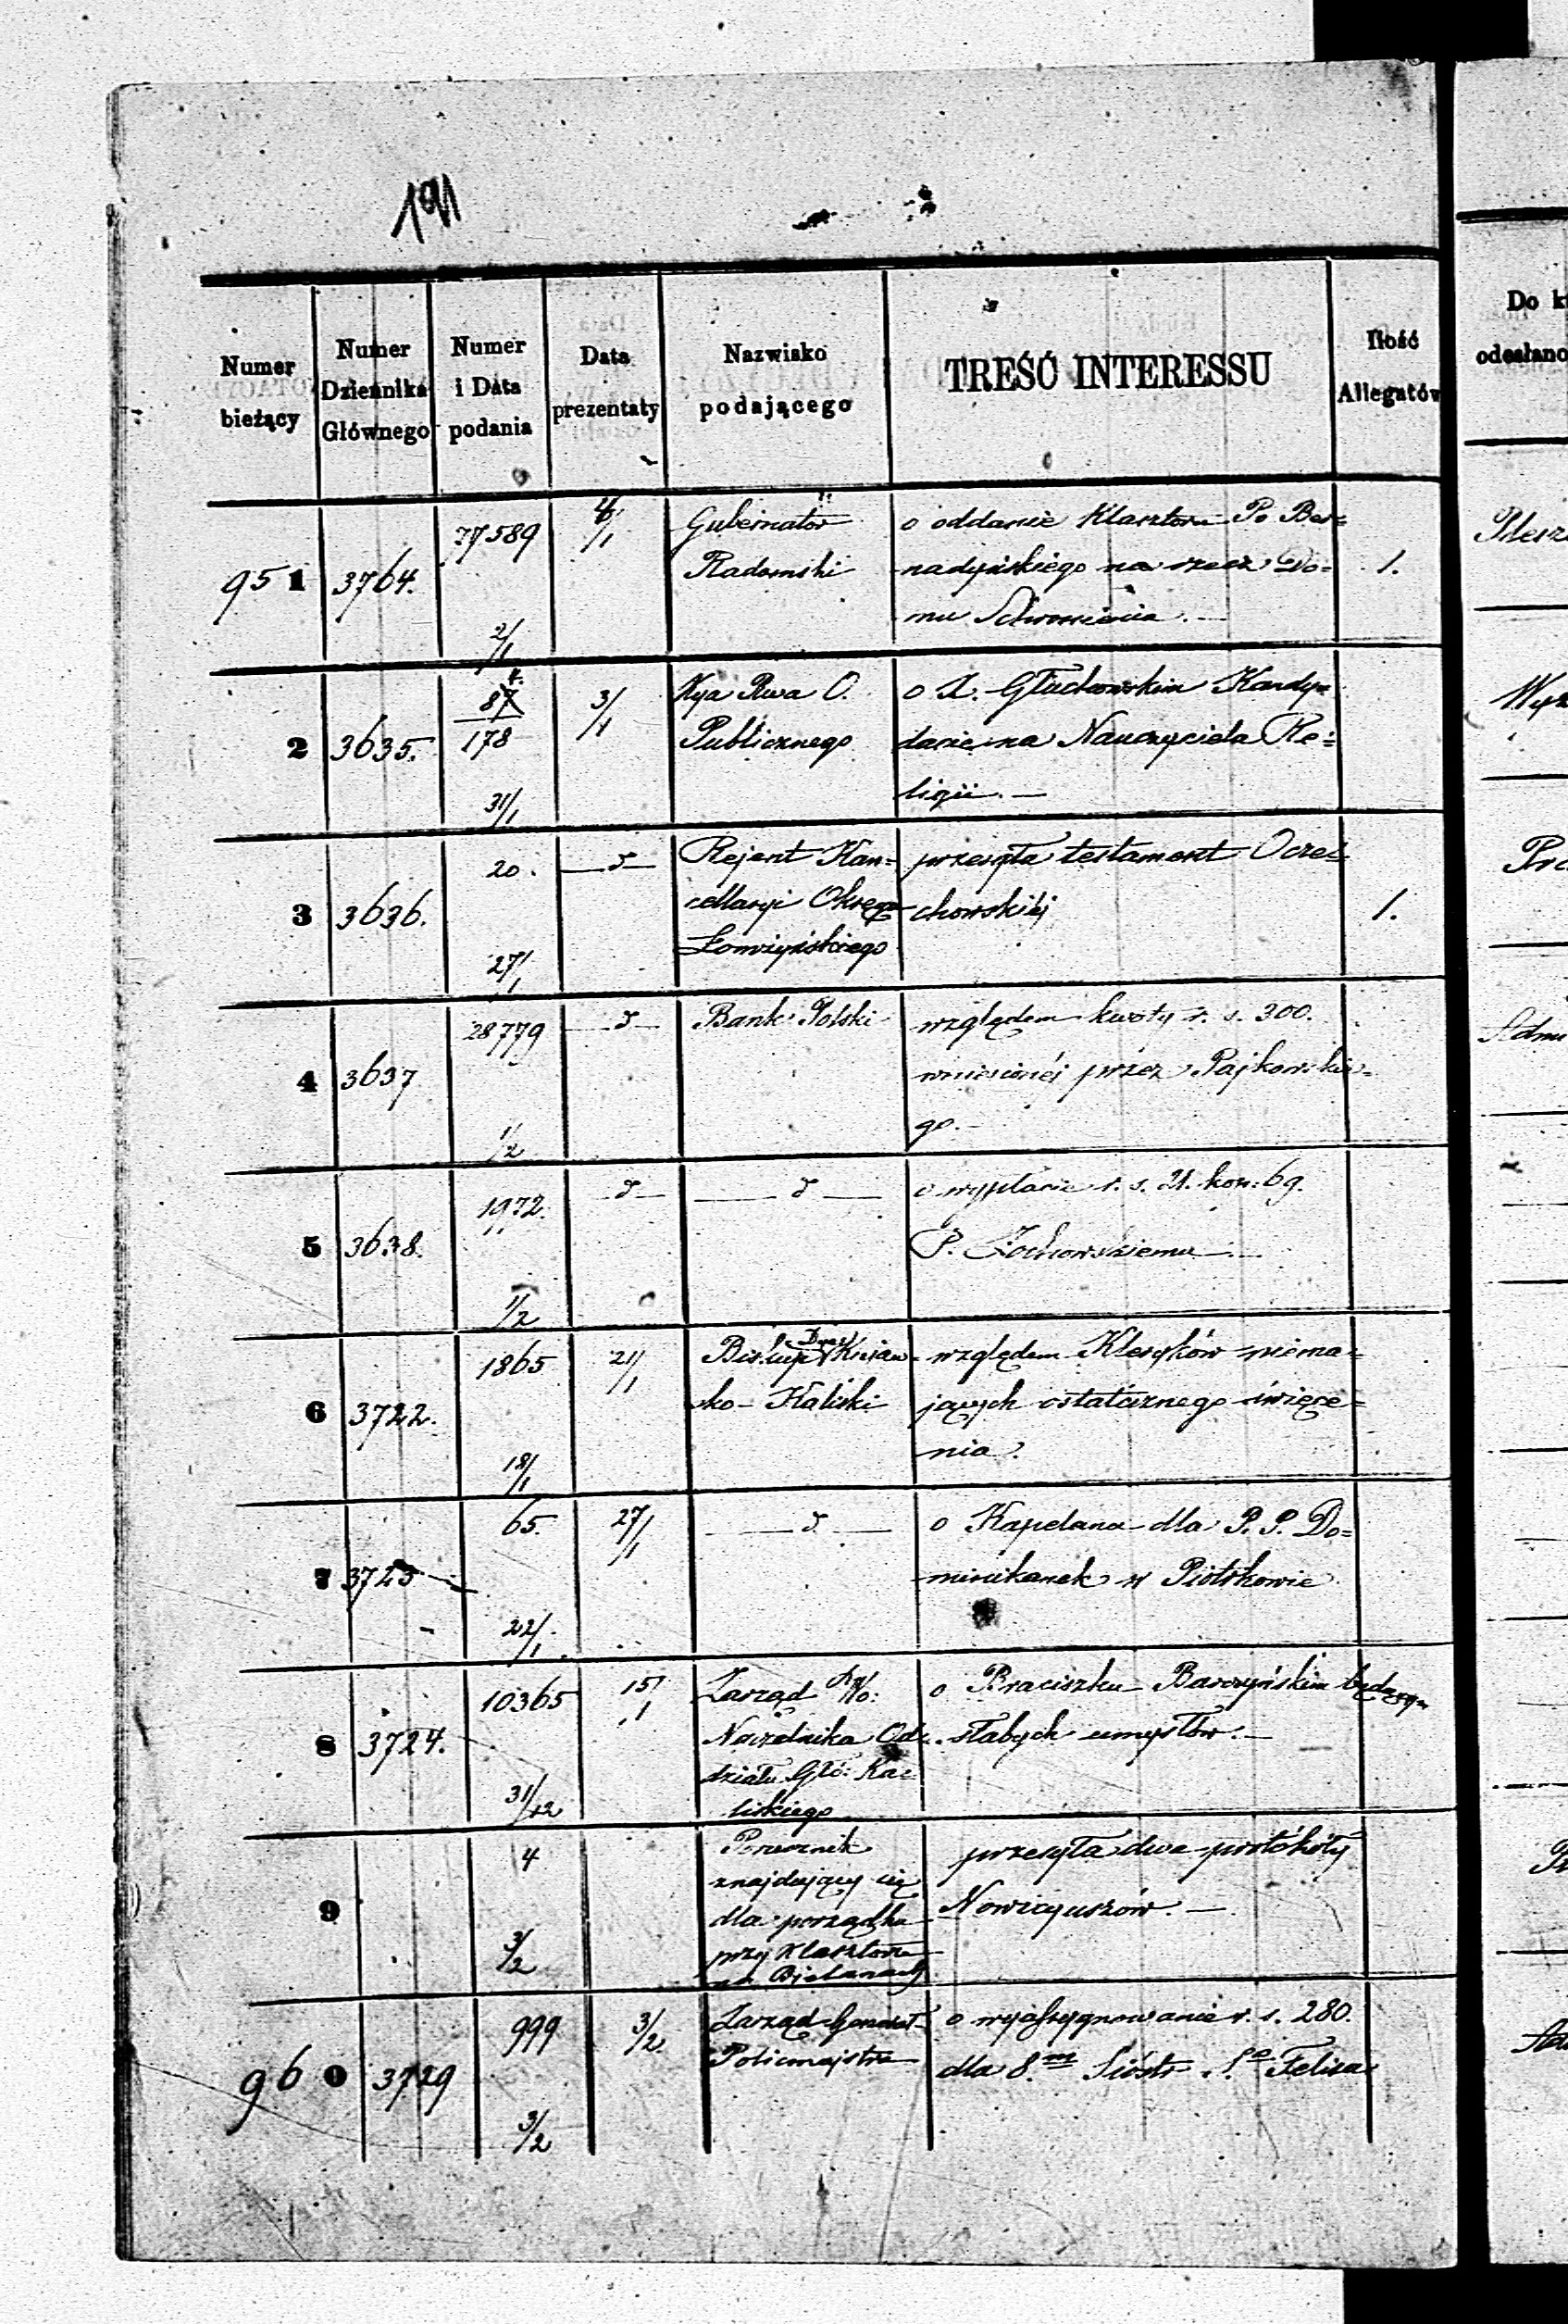 191
Numer bieżący
Numer Dziennika Głównego
Numer i Data podania
Data prezentaty
Nazwisko podającego
TREŚĆ INTERESSU
Ilość Allegatów
Do k
odesłano
951 3764. 77589 2/1 4/1
Gubernator
Radomski
o oddanie Klasztoru Po Ber=
nadyńskiego na rzecz Do=
mu Schronienia.
1.
2 3635. 178 31/1 3/1
Kya Rwa O.
Publicznego
o X. Głuchowskim Kandy=
dacie na Nauczyciela Re=
ligii. —
3 3636. 20. 27/1 —d—
Rejent Kan=
cellaryi Okręgu
Łomżyńskiego
przesyła testament Orze=
chowskiéj
1.
4 3637 28779 1/2 —d—
Bank Polski
względem kwoty r. s. 300.
wniesionéj przez Pajkowskie=
go.
5 3638. 1972. 1/2 —d— —d—
o wypłacie r. s. 21. kop: 69.
P. Żochowskiemu —
6 3722. 1865 18/1 21/1
Biskup Dyec Kujaw=
sko-Kaliski
względem Kleryków niema=
jących ostatecznego święce=
nia.
7 3723 65. 22/1 27/1 —d—
o Kapelana dla P. P. Do=
minikanek w Piotrkowie
8 3724. 10365 31/12 15/1
Zarząd
Naczelnika Od=
działu Głó: Ka=
liskiego
o Braciszku Barczyńskim będącym
słabych umysłów. —
9 4 3/2
Porucznik
znajdujący się
dla porządku
przy Klasztorze
na Bielanach
przesyła dwa protokóły
Nowicyuszów. —
960 3729 999 3/2 3/2
Zarząd Generał
Policmajstra
o wyassygnowanie r. s. 280.
dla 8.m Sióstr S.go Felixa